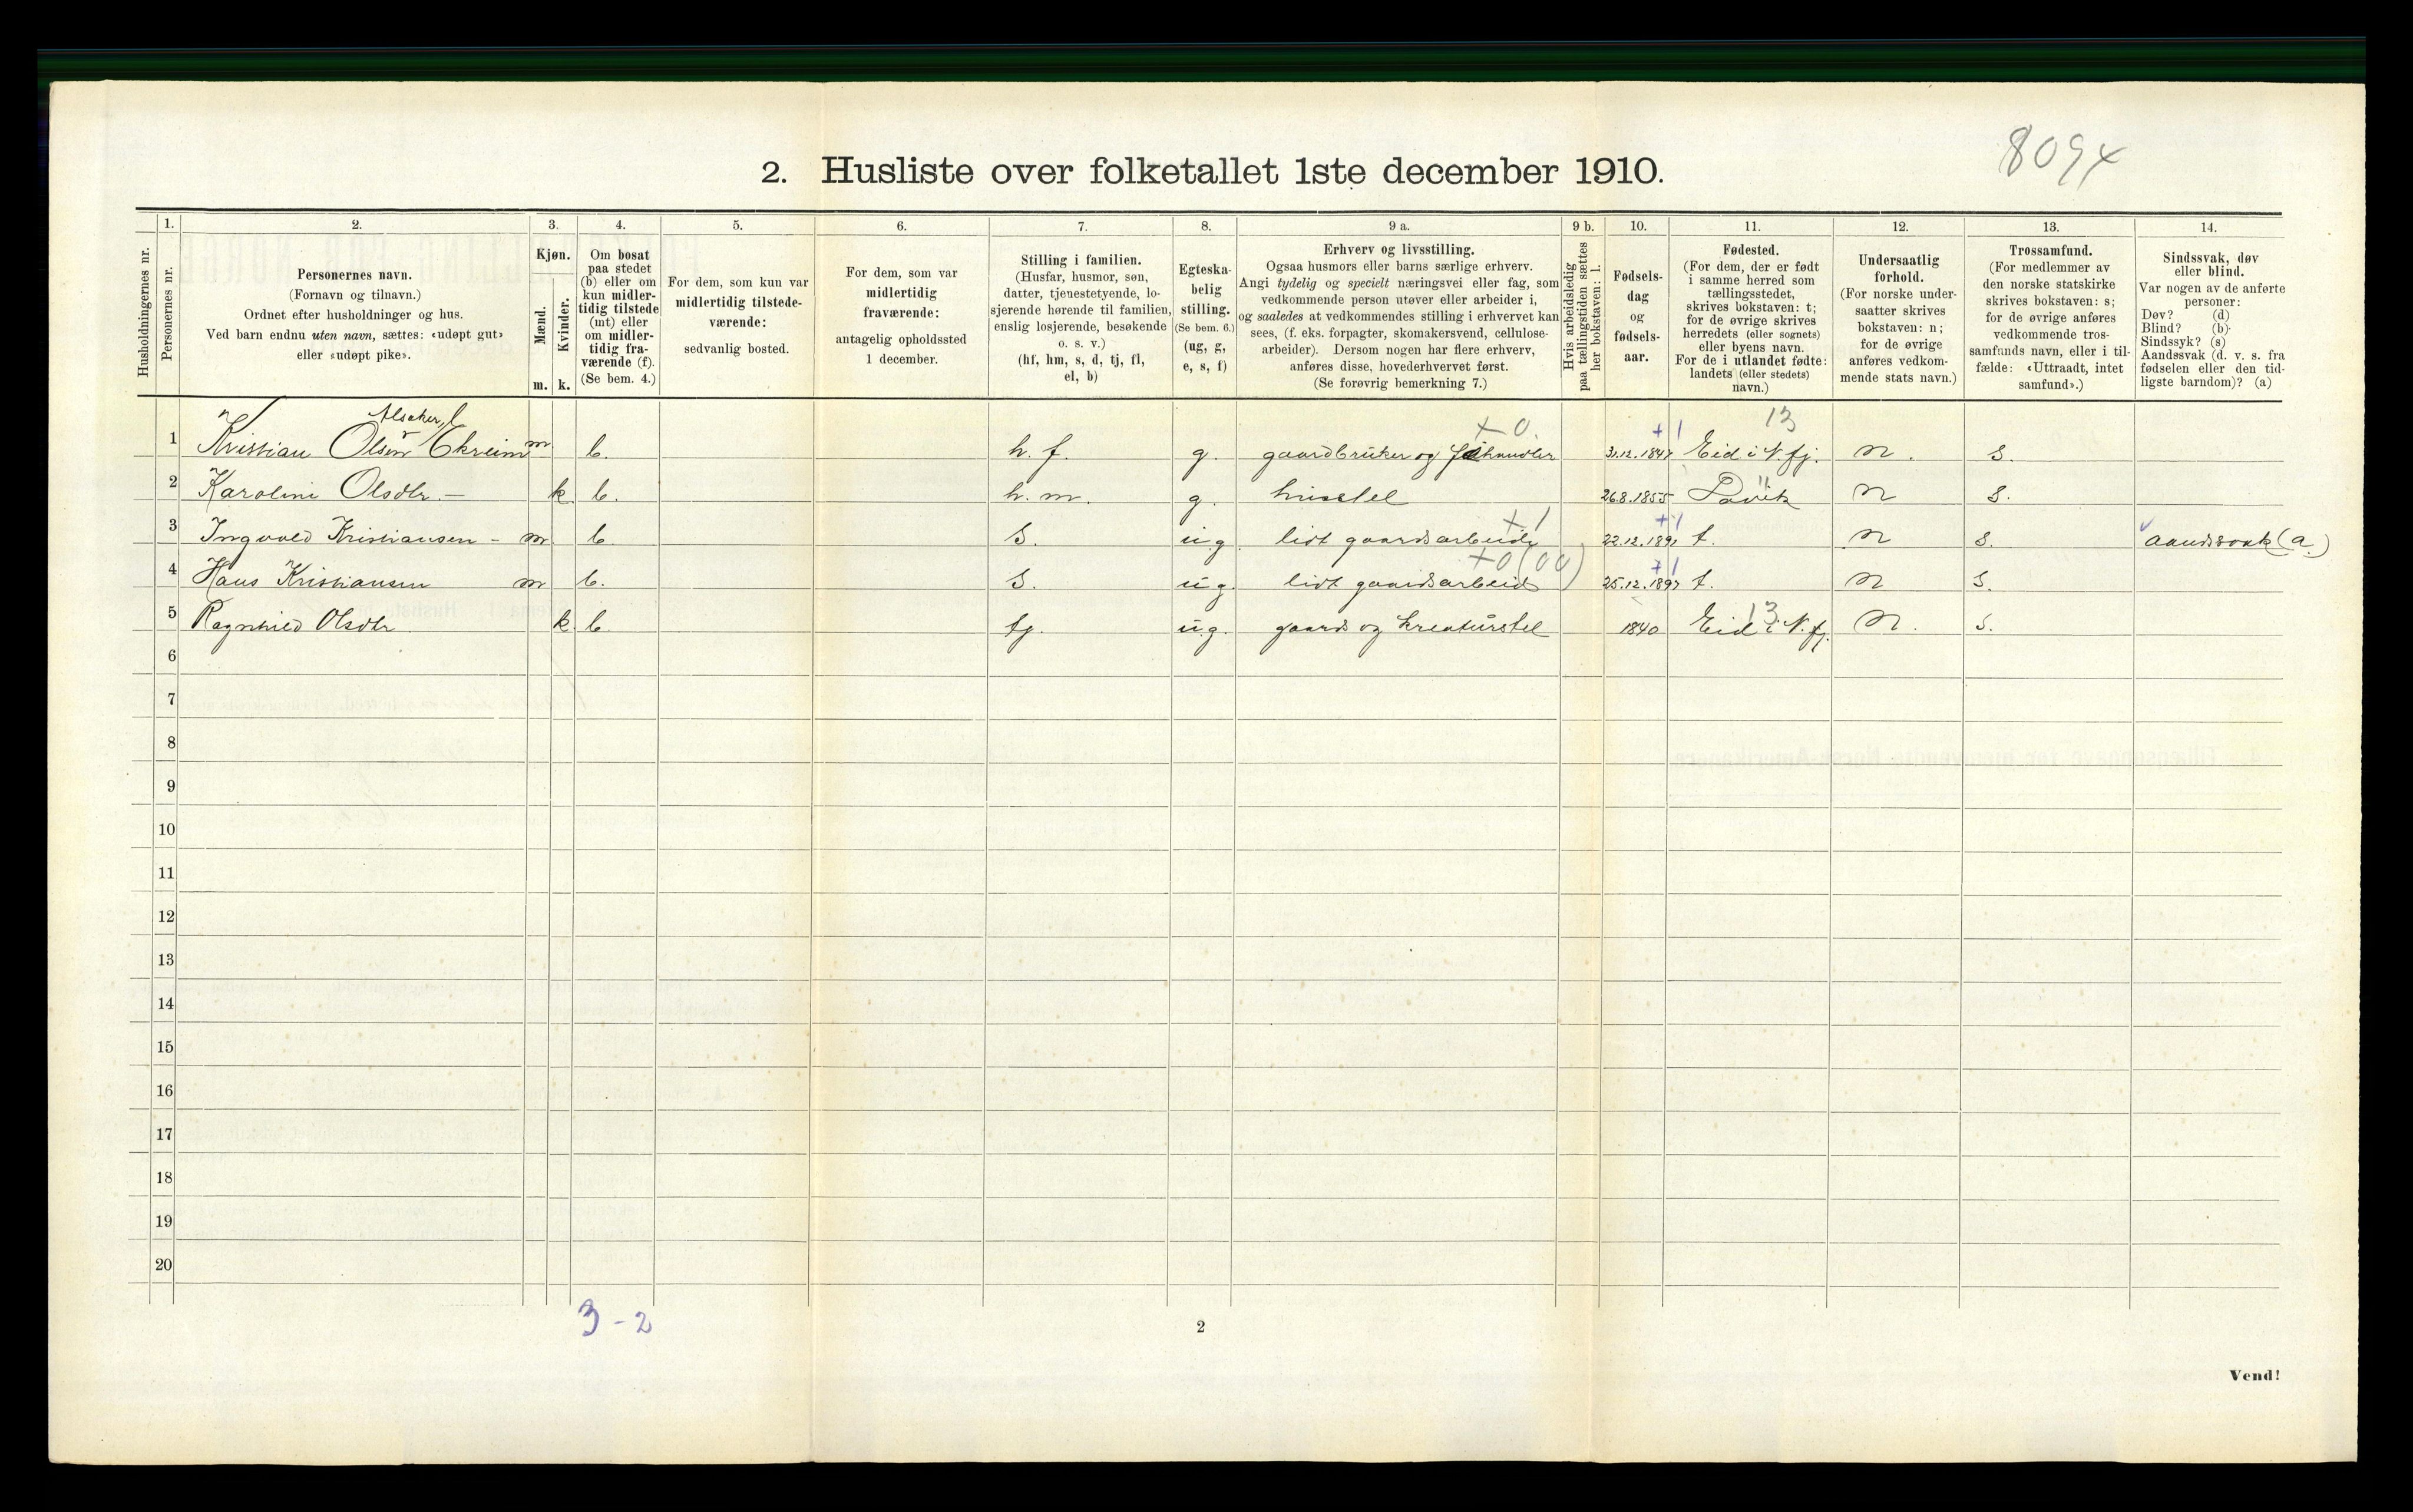 8094
2. Husliste over folketallet 1ste december 1910.
Husholdningernes nr.
1.
Personernes nr.
2.
Personernes navn.
(Fornavn og tilnavn.)
Ordnet efter husholdninger og hus.
Ved barn endnu uten navn, sættes: «udøpt gut»
eller «udøpt pike».
3.
Kjøn.
Mænd.
Kvinder.
m. k.
4.
Om bosat
paa stedet
(b) eller om
kun midler-
tidig tilstede
(mt) eller
om midler-
tidig fra-
værende (f).
(Se bem. 4.)
5.
For dem, som kun var
midlertidig tilstede-
værende:
sedvanlig bosted.
6.
For dem, som var
midlertidig
fraværende:
antagelig opholdssted
1 december.
7.
Stilling i familien.
(Husfar, husmor, søn,
datter, tjenestetyende, lo-
sjerende hørende til familien,
enslig losjerende, besøkende
o. s. v.)
(hf, hm, s, d, tj, fl,
el, b)
8.
Egteska-
belig
stilling.
(Se bem. 6.)
(ug, g,
e, s, f)
9 a.
Erhverv og livsstilling.
Ogsaa husmors eller barns særlige erhverv.
Angi tydelig og specielt næringsvei eller fag, som
vedkommende person utøver eller arbeider i,
og saaledes at vedkommendes stilling i erhvervet kan
sees, (f. eks. forpagter, skomakersvend, cellulose-
arbeider). Dersom nogen har flere erhverv,
anføres disse, hovederhvervet først.
(Se forøvrig bemerkning 7.)
9 b.
Hvis arbeidsledig
paa tællingstiden sættes
her bokstaven: l.
10.
Fødsels-
dag
og
fødsels-
aar.
11.
Fødested.
(For dem, der er født
i samme herred som
tællingsstedet,
skrives bokstaven: t;
for de øvrige skrives
herredets (eller sognets)
eller byens navn.
For de i utlandet fødte:
landets (eller stedets)
navn.)
12.
Undersaatlig
forhold.
(For norske under-
saatter skrives
bokstaven: n;
for de øvrige
anføres vedkom-
mende stats navn.)
13.
Trossamfund.
(For medlemmer av
den norske statskirke
skrives bokstaven: s;
for de øvrige anføres
vedkommende tros-
samfunds navn, eller i til-
fælde: «Uttraadt, intet
samfund».)
14.
Sindssvak, døv
eller blind.
Var nogen av de anførte
personer:
Døv? (d)
Blind? (b)
Sindssyk? (s)
Aandssvak (d. v. s. fra
fødselen eller den tid-
ligste barndom)? (a)
+0 +1 13
1 Kristian Olsen Ekreim m b. h. f. g. gaardbruker og 31.12.1847 Eid i N. fj. n. s.
2 Karolini Olsdtr. — k b. h. m. g. husstel 26.8.1855 n s.
+1 +1
3 Ingvald Kristiansen - m b. s. ug. lidt gaardsarbeide 22.12.1891 t. n s. aandssvak (a.)
+0 (00) +1
4 Hans Kristiansen m b. s. ug. lidt gaardsarbeide 25.12.1897 t. n s.
13
5 Ragnhild Olsdtr k b. tj. ug. gaards og kreaturstel 1840 Eid i N. fj. n. s.
6
7
8
9
10
11
12
13
14
15
16
17
18
19
20
3 - 2
2
Vend!